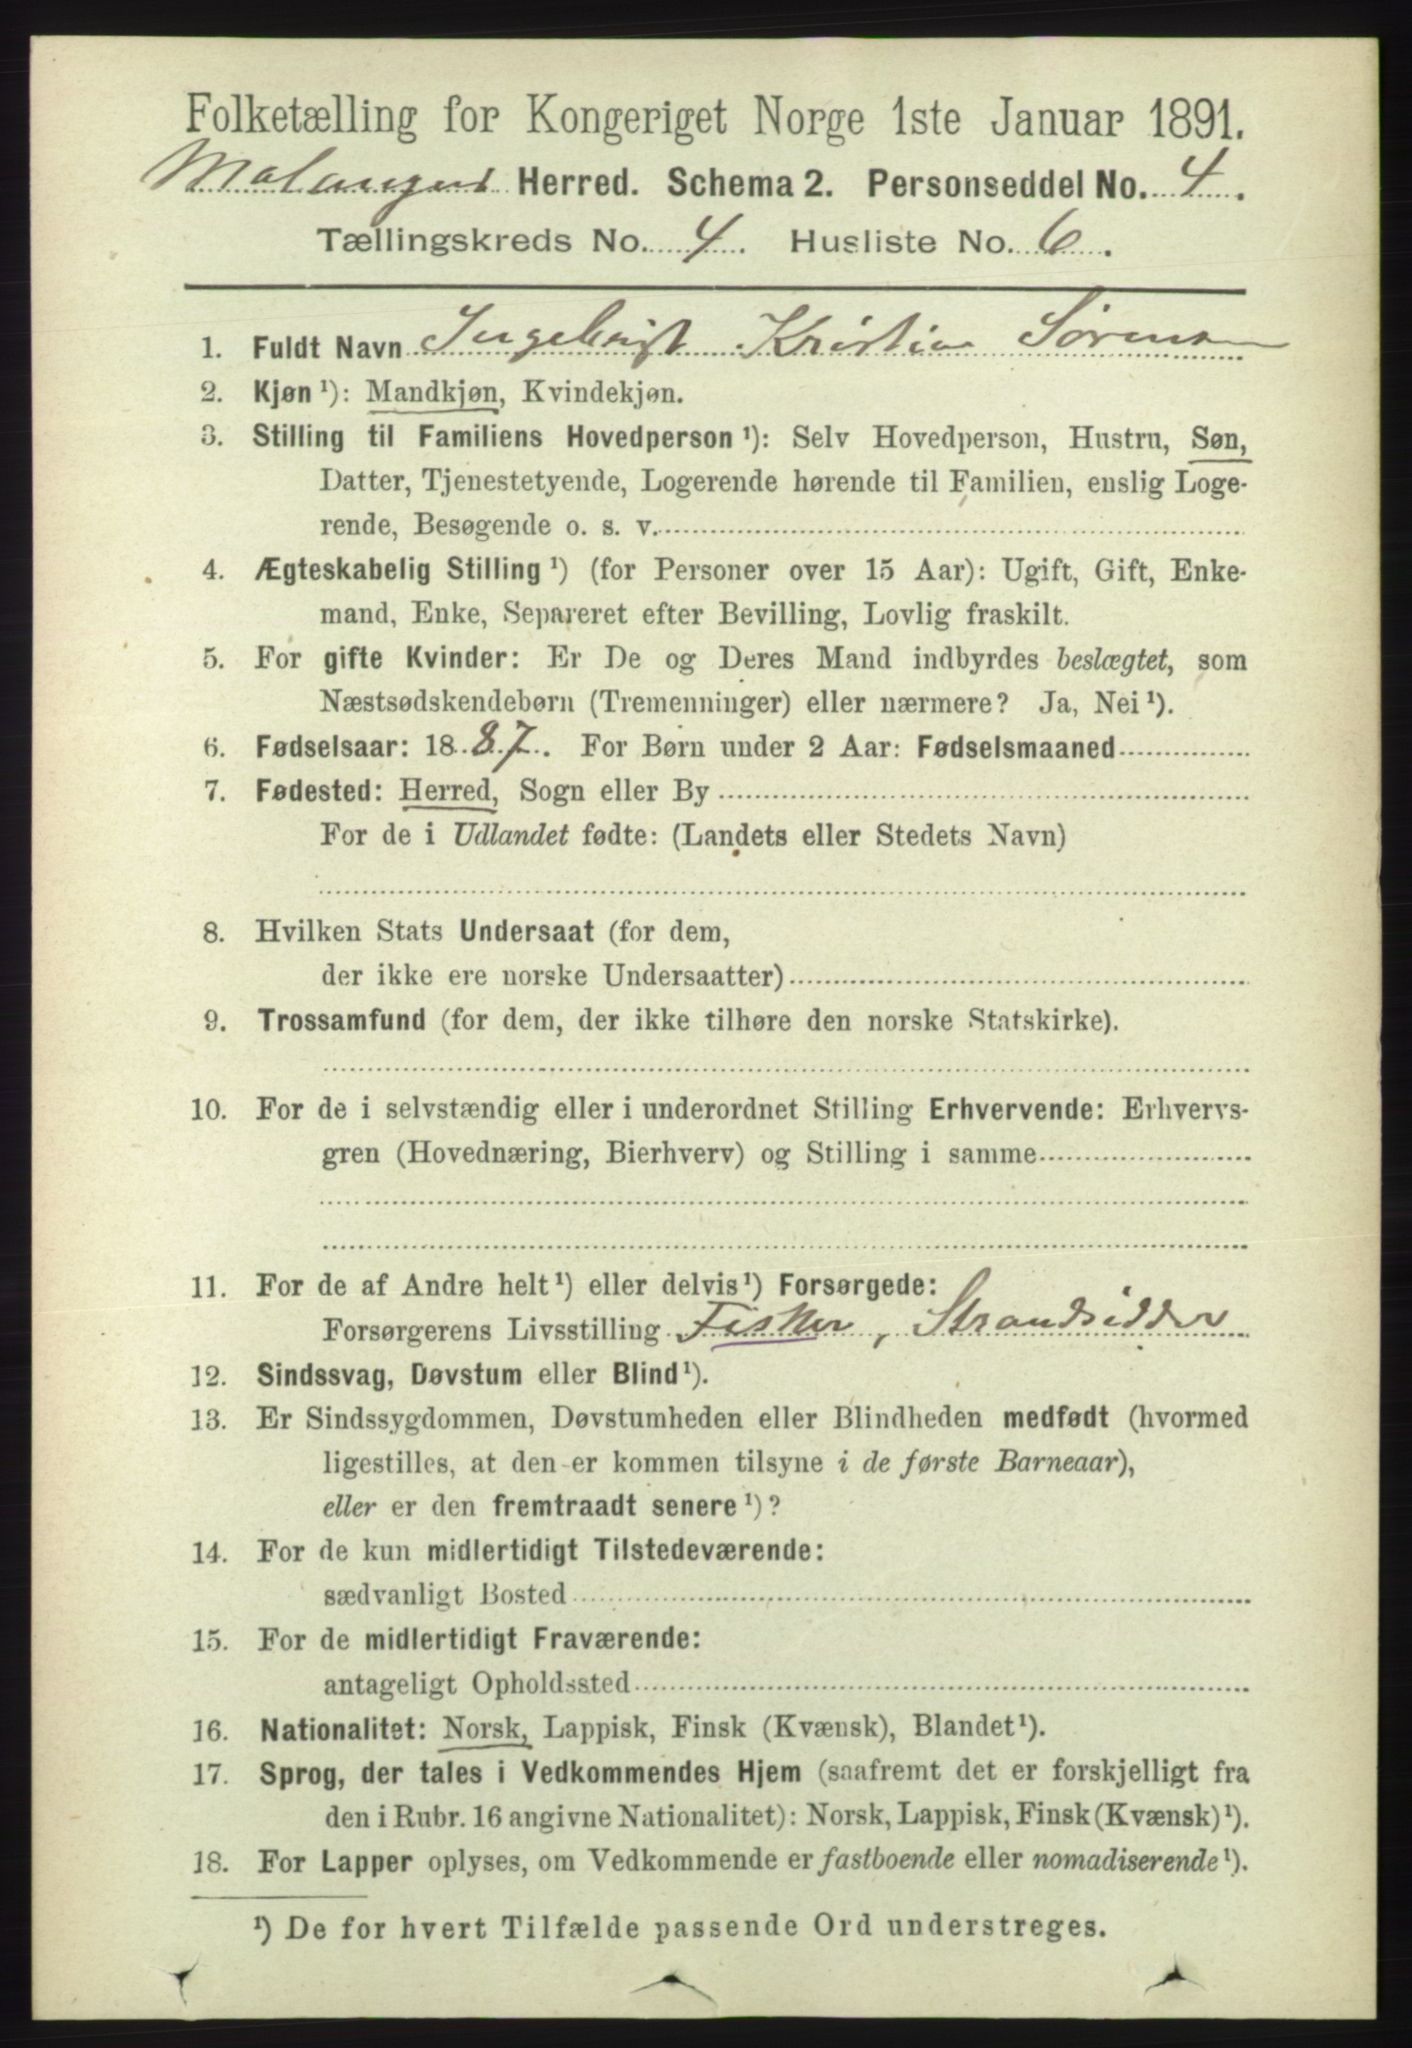 Folketælling for Kongeriget Norge 1ste Januar 1891.
Malangens Herred. Schema 2. Personseddel No. 4.
Tællingskreds No. 4. Husliste No. 6.
1. Fuldt Navn Ingebrigt Kristian Sørensen
2. Kjøn ¹): Mandkjøn, Kvindekjøn.
3. Stilling til Familiens Hovedperson ¹): Selv Hovedperson, Hustru, Søn,
Datter, Tjenestetyende, Logerende hørende til Familien, enslig Loge-
rende, Besøgende o. s. v.
4. Ægteskabelig Stilling ¹) (for Personer over 15 Aar): Ugift, Gift, Enke-
mand, Enke, Separeret efter Bevilling, Lovlig fraskilt.
5. For gifte Kvinder: Er De og Deres Mand indbyrdes beslægtet, som
Næstsødskendebørn (Tremenninger) eller nærmere? Ja, Nei ¹).
6. Fødselsaar: 1887. For Børn under 2 Aar: Fødselsmaaned
7. Fødested: Herred, Sogn eller By
For de i Udlandet fødte: (Landets eller Stedets Navn)
8. Hvilken Stats Undersaat (for dem,
der ikke ere norske Undersaatter)
9. Trossamfund (for dem, der ikke tilhøre den norske Statskirke).
10. For de i selvstændig eller i underordnet Stilling Erhvervende: Erhvervs-
gren (Hovednæring, Bierhverv) og Stilling i samme
11. For de af Andre helt ¹) eller delvis ¹) Forsørgede:
Forsørgerens Livsstilling Fisker, Strandsidder
12. Sindssvag, Døvstum eller Blind ¹).
13. Er Sindssygdommen, Døvstumheden eller Blindheden medfødt (hvormed
ligestilles, at den er kommen tilsyne i de første Barneaar),
eller er den fremtraadt senere ¹)?
14. For de kun midlertidigt Tilstedeværende:
sædvanligt Bosted
15. For de midlertidigt Fraværende:
antageligt Opholdssted
16. Nationalitet: Norsk, Lappisk, Finsk (Kvænsk), Blandet ¹).
17. Sprog, der tales i Vedkommendes Hjem (saafremt det er forskjelligt fra
den i Rubr. 16 angivne Nationalitet): Norsk, Lappisk, Finsk (Kvænsk) ¹).
18. For Lapper oplyses, om Vedkommende er fastboende eller nomadiserende ¹).
¹) De for hvert Tilfælde passende Ord understreges.